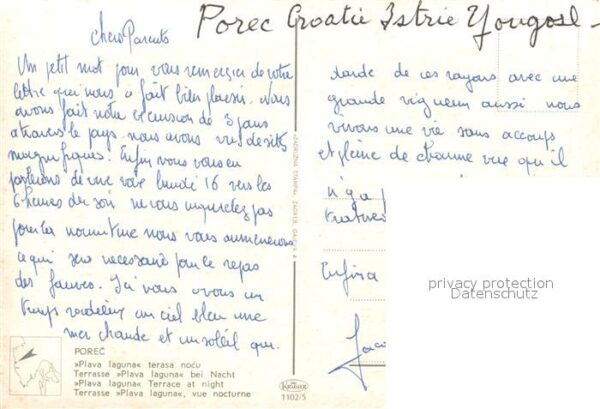 Porec Croatie Istrie Yougosl-
chers Parents
Un petit mot pour vous remercier de votre
lettre qui nous a fait bien plaisir. Nous
avons fait notre excursion de 3 jours
a travers le pays. nous avons vu des sites
magnifiques. Enfin vous vous en
de vive voix lundi 16 vers les
6 heures du soir ne vous inquietez pas
pour la nourriture nous vous ammenerons
ce qui sera necessaire pour le repas
des fauves. Ici nous avons un
temps un ciel bleu une
mer chaude et un soleil qui
darde de ces rayons avec une
grande vigueur aussi nous
vivons une vie sans accoups
et pleine de charme vue qu'il
n'y a p
Enfin
privacy protection
Datenschutz
POREČ
»Plava laguna« terasa noću
Terrasse »Plava laguna« bei Nacht
»Plava laguna« Terrace at night
Terrasse »Plava laguna«, vue nocturne
1102/5